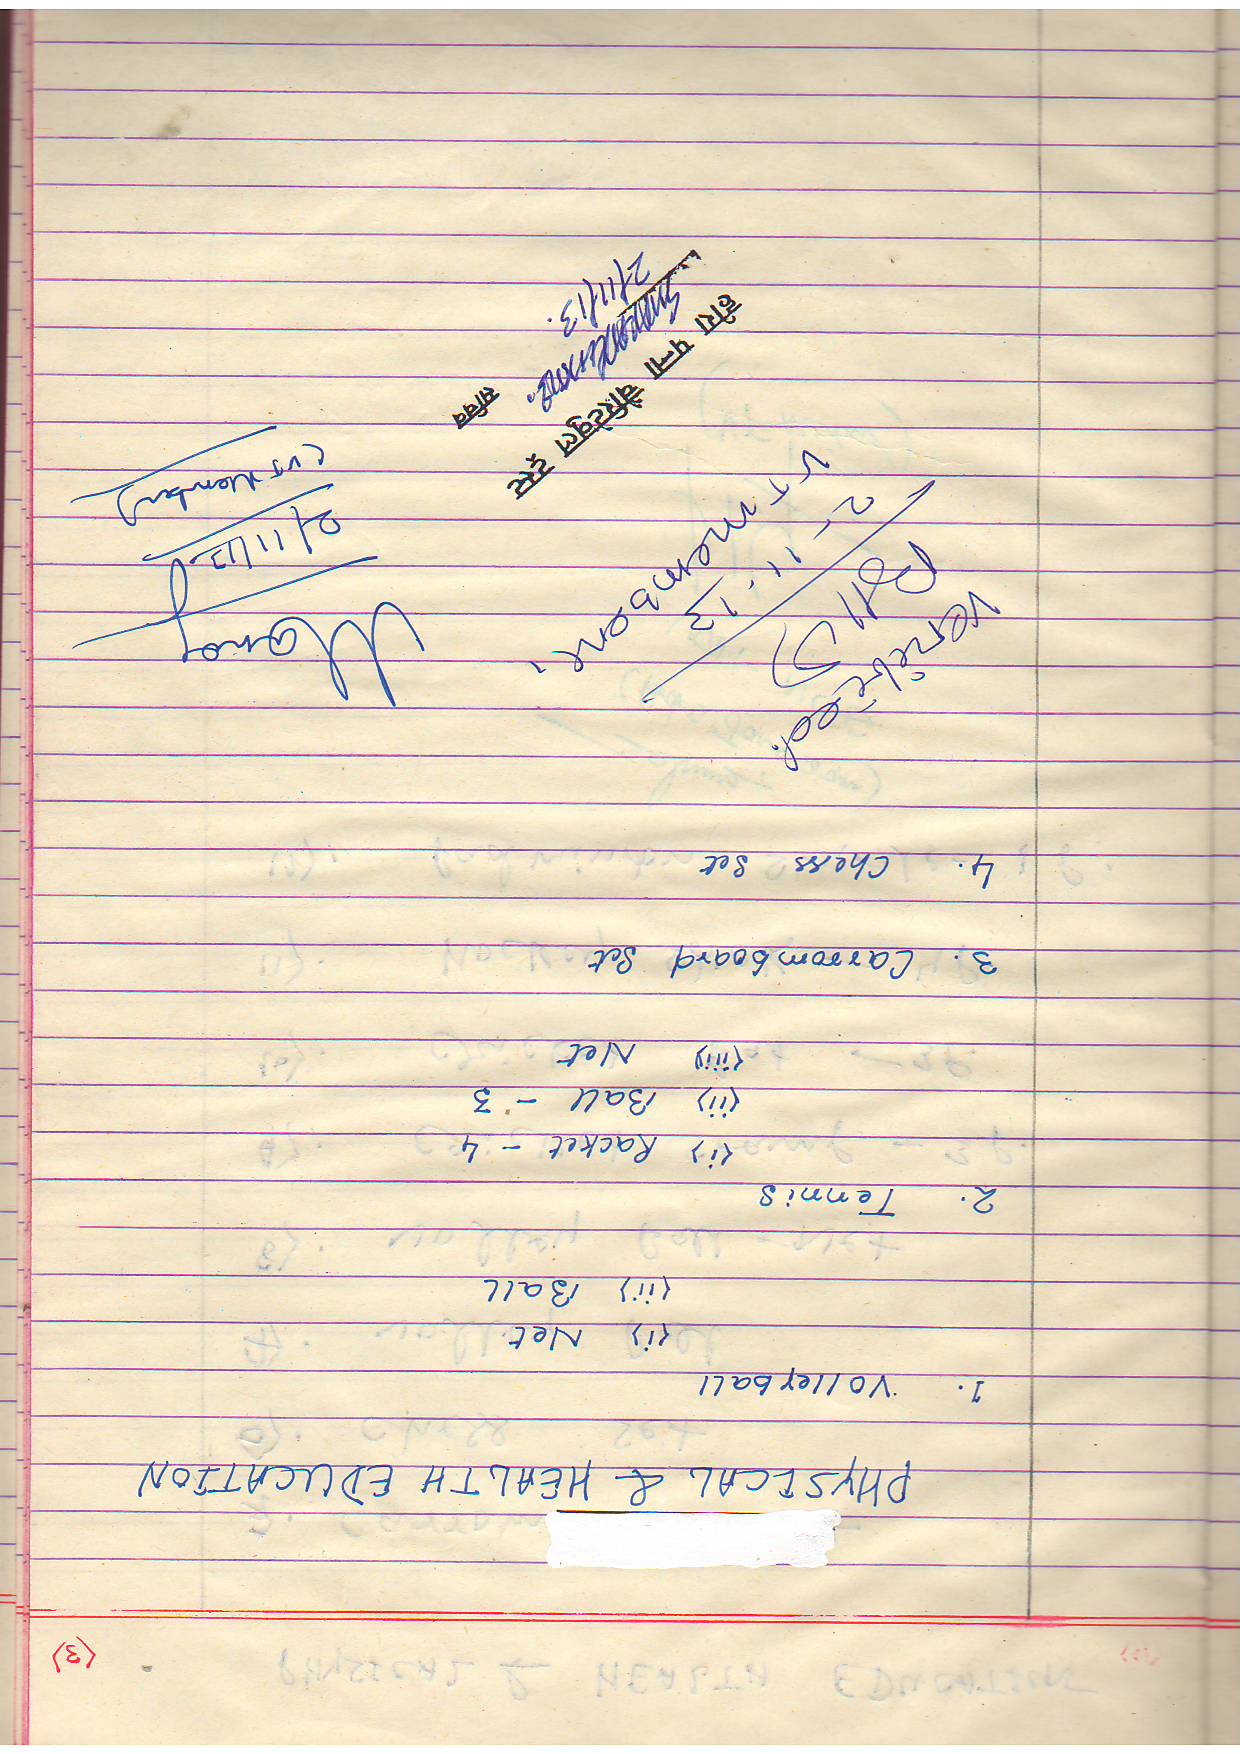 (3)
PHYSICAL & HEALTH EDUCATION
1. Volleyball
(i) Net
(ii) Ball
2. Tennis
(i) Racket - 4
(ii) Ball - 3
(iii) Net
3. Carromboard Set
4. Chess Set
Verified.
2.11.13
VT member
Manoj
2/11/13
(VT Member)
2/11/13.
हीरा पन्ना चैरिटेबुल ट्रस्ट